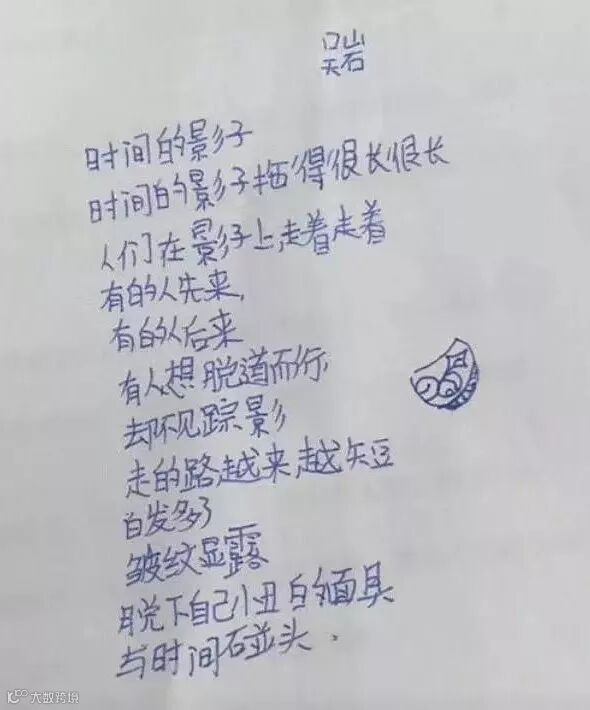 吴岩
时间的影子
时间的影子拖得很长很长
人们在影子上走着走着
有的人先来,
有的人后来
有人想脱道而行,
却不见踪影
走的路越来越短
白发多了
皱纹显露
脱下自己小丑的面具
与时间碰头.
大数跨境